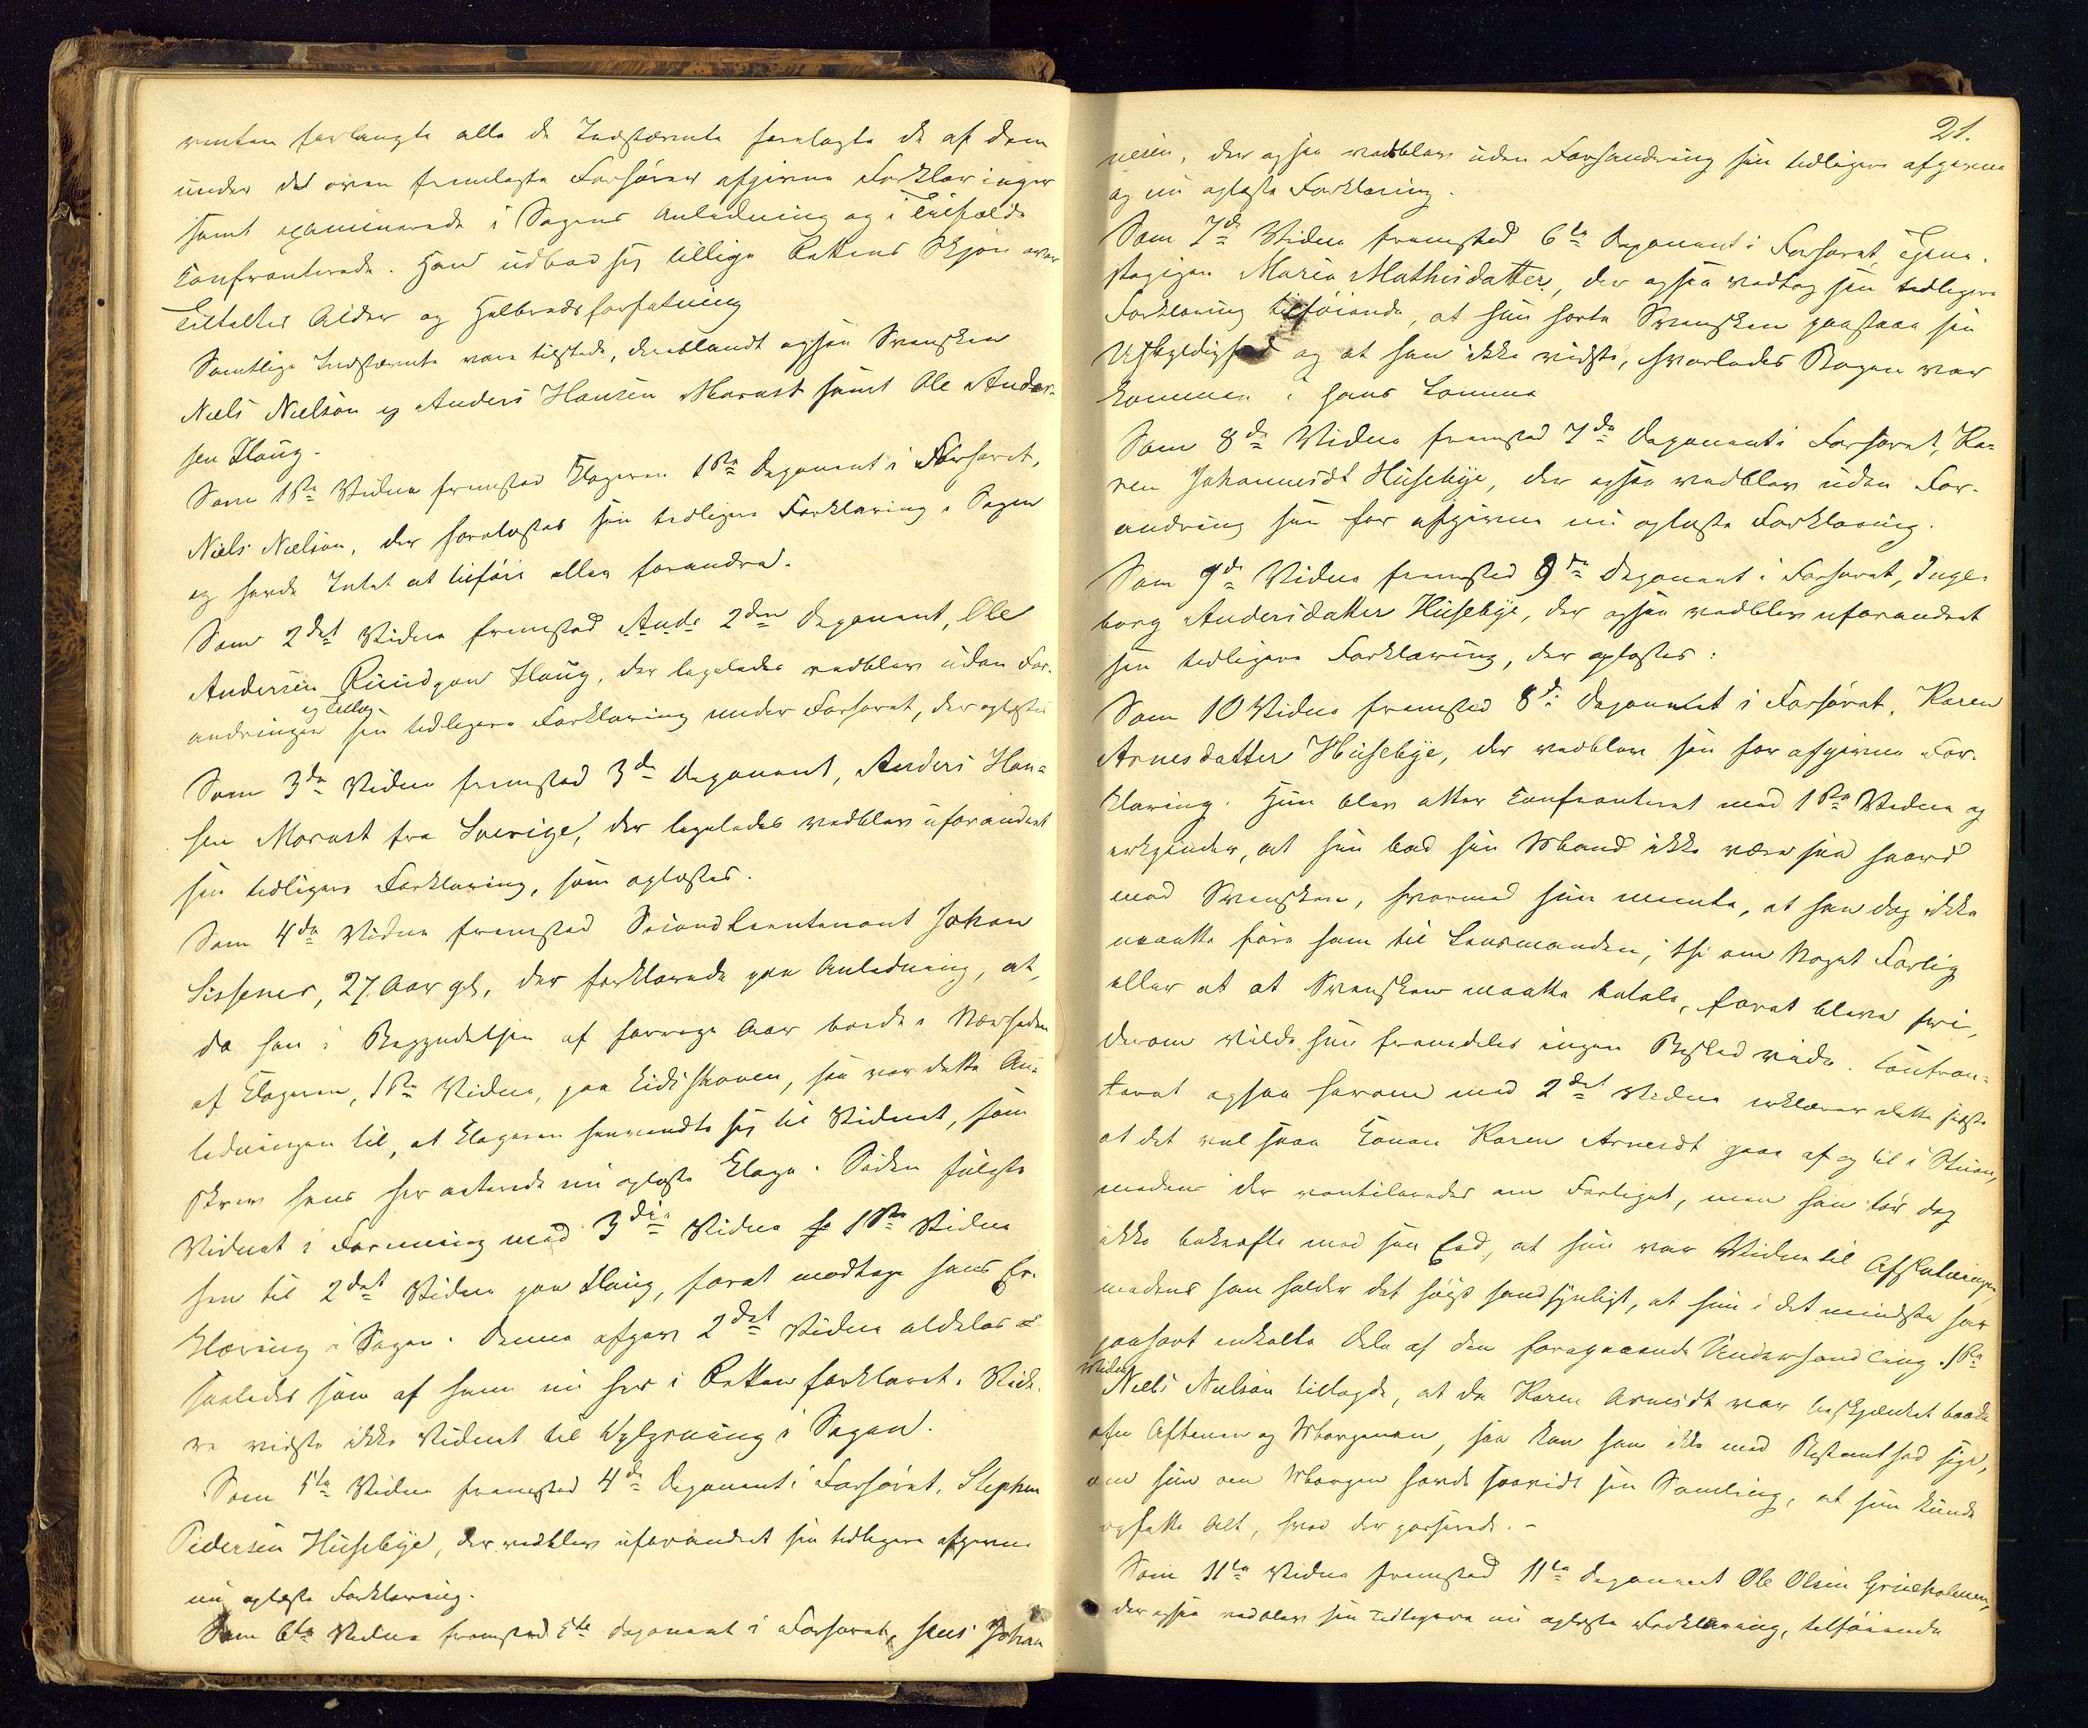 renten forlangte alle de Indstævnte forelagte de af dem
under det oven fremlagte Forhører afgivne Forklaringer
samt examinerede i Sagens Anledning og i Tilfælde
confronterede. Han udbad sig tillige Rettens Skjøn over
Tiltaltes Alder og Helbredsforfatning
Samtlige Indstævnte vare tilstede, deriblandt ogsaa Svensken
Niels Nielsen og Anders Hansen Morast samt Ole Ander-
sen Haug.
Som 1ste Vidne fremstod Klageren 1ste Deponent i Forhøret,
Niels Nielsen, der forelæstes sin tidligere Forklaring i Sagen
og havde Intet at tilføie eller forandre.
Som 2det Vidne fremstod 2den Deponent, Ole
Andersen Ruud paa Haug, der ligeledes vedblev uden For-
andringer og Tillæg sin tidligere Forklaring under Forhøret, der oplæstes
Som 3die Vidne fremstod 3die Deponent, Anders Han-
sen Morast fra Sverige, der ligeledes vedblev uforandret
sin tidligere Forklaring, som oplæstes.
Som 4de Vidne fremstod Secondlieutenant Johan
Sissener, 27 Aar gl, der forklarede paa Anledning, at,
da han i Begyndelsen af forrige Aar boede i Nærheden
af Klageren, 1ste Vidne, paa Eidsskoven, saa var dette An-
ledningen til, at Klageren henvendte sig til Vidnet, som
skrev hans her acterede nu oplæste Klage. Siden fulgte
Vidnet i Forening med 3die Vidne 1ste Vidne
hen til 2det Vidne paa Haug, forat modtage hans Er-
klæring i Sagen. Denne afgav 2det Vidne aldeles
saaledes som af ham nu her i Retten forklaret. Vide-
re vidste ikke Vidnet til Oplysning i Sagen.
Som 5te Vidne fremstod 4de Deponent i Forhøret, Stephen
Pedersen Husebye, der vedblev uforandret sin tidligere afgivne
nu oplæste Forklaring.
Som 6te Vidne fremstod 5te Deponent i Forhøret, Hans Johan
21.
nesen, der ogsaa vedblev uden Forandring sin tidligere afgivne
og nu oplæste Forklaring.
Som 7de Vidne fremstod 6te Deponent i Forhøret, Tjene-
stepigen Maria Mathisdatter, der ogsaa vedtog sin tidligere
Forklaring tilføiende, at hun hørte Svensken paastaae sin
Uskyldighed og at han ikke vidste, hvorledes Bogen var
kommen i hans Lomme
Som 8de Vidne fremstod 7de Deponent i Forhøret, Ka-
ren Johannesdt Husebye, der ogsaa vedblev uden For-
andring sin før afgivne nu oplæste Forklaring.
Som 9de Vidne fremstod 9de Deponent i Forhøret, Inge-
borg Andersdatter Husebye, der ogsaa vedblev uforandret
sin tidligere Forklaring, der oplæstes:
Som 10 Vidne fremstod 8de Deponent i Forhøret, Karen
Arnesdatter Husebye, der vedblev sin før afgivne For-
klaring. Hun blev atter confronteret med 1ste Vidne og
erkjender, at hun bad sin Mand ikke være saa haard
mod Svensken, hvormed hun meente, at han dog ikke
maatte føre ham til Lensmanden, thi om Noget Forlig
eller at at Svensken maatte betale, forat blive fri,
derom vilde hun fremdeles ingen Besked vide. Confron-
teret ogsaa herom med 2det Vidne erklærer dette sidste
at det vel saae Konen Karen Arnesdt gaae af og til i Stuen,
medens der ventileredes om Forliget, men han tør dog
ikke bekræfte med sin Eed, at hun var Vidne til Afslutningen,
medens han holder det høist sandsynligt, at hun i det mindste har
paahørt enkelte Dele af den foregaaende Underhandling. 1ste
Vidne Niels Nielsen tillagde, at da Karen Arnesdt var beskjænket baade
om Aftenen og Morgenen, saa kan han ikke med Bestemthed sige,
om hun om Morgen havde saavidt sin Samling, at hun kunde
opfatte Alt, hvad der passerede. -
Som 11te Vidne fremstod 11te Deponent Ole Olsen Grueholmen,
der ogsaa vedblev sin tidligere nu oplæste Forklaring, tilføiende